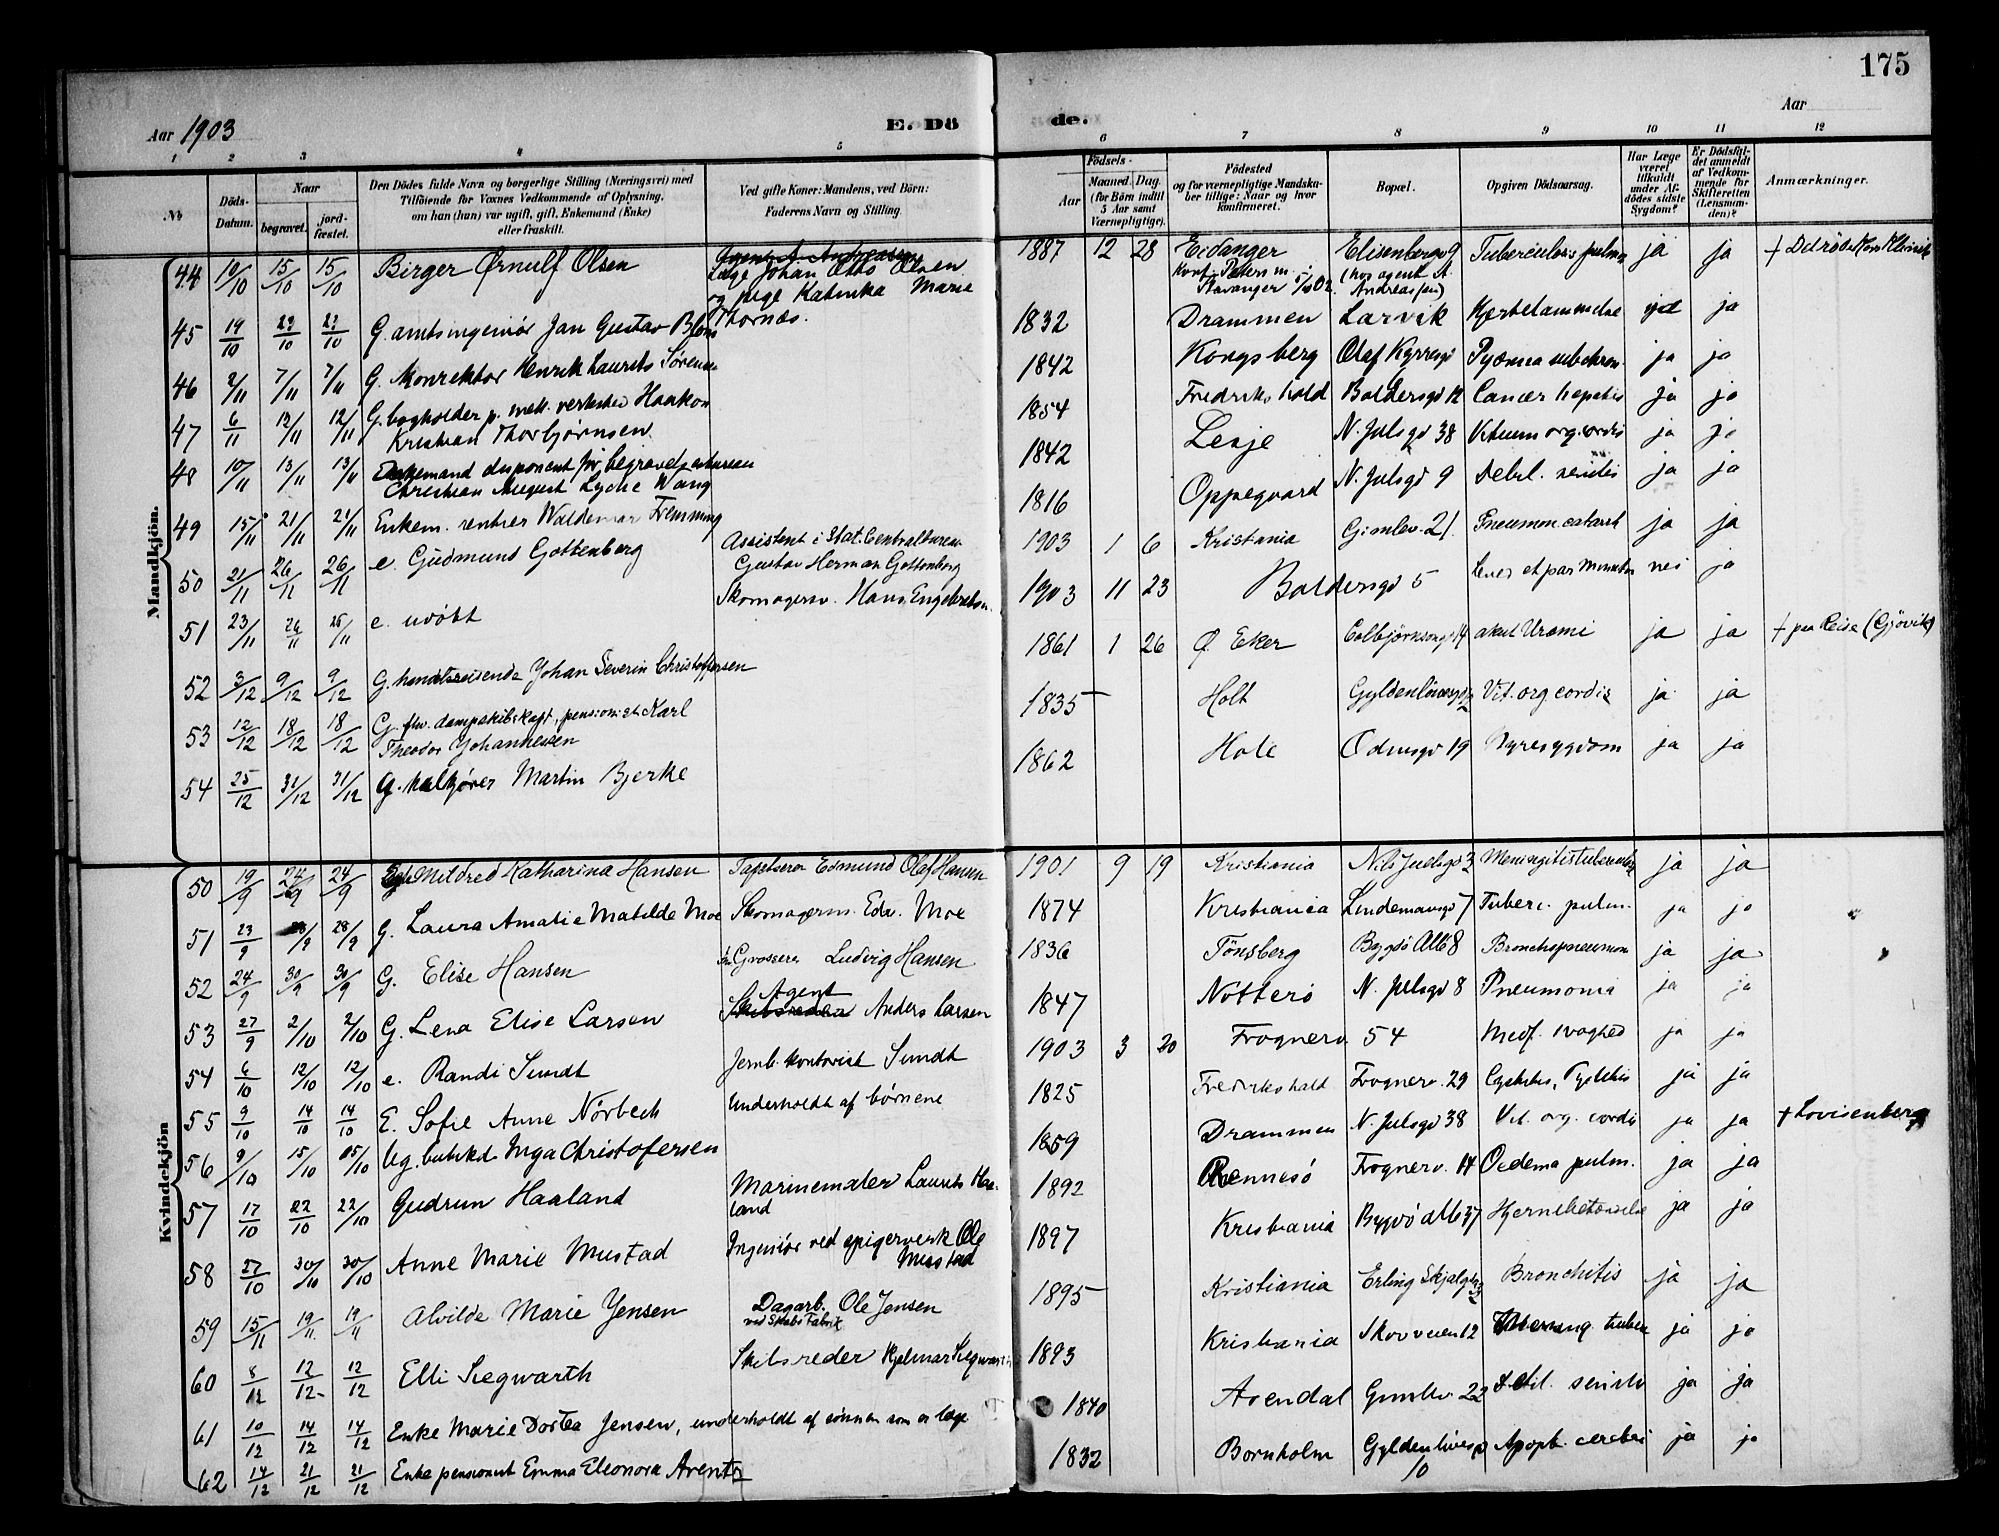 175
Aar 1903
E. Dö
de.
Aar
1 2 3 4 5 6 7 8 9 10 11 12
No
Döds-Datum.
Naar
begravet.
jord-fæstet.
Den Dödes fulde Navn og borgerlige Stilling (Næringsvei) med
Tilföiende for Voxnes Vedkommende af Oplysning,
om han (hun) var ugift, gift, Enkemand (Enke)
eller fraskilt.
Ved gifte Koner: Mandens, ved Börn:
Faderens Navn og Stilling.
Födsels-
Aar
Maaned. Dag.
(for Börn indtil
5 Aar samt
Værnepligtige).
Födested
og for værnepligtige Mandska-
ber tillige: Naar og hvor
konfirmeret.
Bopæl.
Opgiven Dödsaarsag.
Har Læge
været
tilkaldt
under Af-
dödes sidste
Sygdom?
Er Dödsfal-
det anmeldt
af Vedkom-
mende for
Skifteretten
(Lensman-
den)?
Anmærkninger.
Mandkjön.
44 10/10 15/10 15/10 Birger Ørnulf Olsen Agent A. Andreassen 1887 12 28 Eidanger Elisenbergv 9 Tuberculosis pulm ja ja † Det røde Kors Klinik
Læge Johan Otto Olsen Konf. Petersm. (hos agent A.
og pige Katinka Marie Stavanger Andreasen)
Thornæs.
45 19/10 23/10 23/10 G. amtsingeniör Jan Gustav Blom 1832 Drammen Larvik Hjertelammelse ja ja
46 2/11 7/11 7/11 G. konrektor Henrik Laurits Sörensen 1842 Kongsberg Olaf Kyrresgd Pyæmia subchron. ja ja
47 6/11 12/11 12/11 G. bogholder p. mek. verksted Haakon 1854 Fredrikshald Baldersgd 12 Cancer hepatis ja ja
Kristian Thorbjørnsen.
48 10/11 13/11 13/11 Enkemand disponent for begravelsesbureau 1842 Lesje N. Julsgd 38 Vitium org. cordis ja ja
Christian August Lyche Wang
49 15/11 21/11 21/11 Enkem. rentier Waldemar Flemming 1816 Oppegaard N. Julsgd 9 Debil. senilis ja ja
50 21/11 26/11 26/11 e. Gudmund Gottenberg Assistent i Stat. Centralbureau 1903 1 6 Kristiania Gimlev. 21 Pneumon. catarrh ja ja
Gustav Herman Gottenberg
51 23/11 26/11 26/11 e. udöbt Skomagersv. Hans Engebretsen 1903 11 23 Baldersgd 5 nei ja
52 3/12 9/12 9/12 G. handelsreisende Johan Severin Christoffersen 1861 1 26 Ø. Eker Colbjørnsensgd 14 akut Uræmi ja ja † paa Reise (Gjövik)
53 12/12 18/12 18/12 G. fhv. dampskibskapt., pensionist Karl 1835 Holt Gyldenlövesgd Vit. org. cordis ja ja
Theodor Johannessen
54 25/12 31/12 31/12 G. kulkjører Martin Bjerke 1862 Hole Odinsgd 19 Nyresygdom ja ja
Kvindekjön
50 19/9 24/9 24/9 Mildred Katharina Hansen Tapetserer Edmund Olaf Hansen 1901 9 19 Kristiania Nils Juelsgd 3 Meningitis tuberculosa ja ja
51 23/9 28/9 28/9 G. Laura Amalie Matilde Moe Skomagerm. Edv. Moe 1874 Kristiania Lindemansgd 7 Tuberc. pulm. ja ja
52 24/9 30/9 30/9 G. Elise Hansen Grosserer Ludvig Hansen 1836 Tönsberg Bygdö Allé 8 Bronchopneumon ja ja
53 27/9 2/10 2/10 G. Lena Elise Larsen Agent 1847 Nötterö N. Julsgd 8 Pneumonia ja ja
Skibsreder Anders Larsen
54 6/10 12/10 12/10 e. Randi Sundt Jernb. kontorist Sundt 1903 3 20 Frognerv 54 Medf. svaghed ja ja
55 9/10 14/10 14/10 E. Sofie Anne Nörbech Underholdt af børnene 1825 Fredrikshald Frognerv. 29 Cystitis, Pyelitis ja ja
56 9/10 15/10 15/10 Ug. butikd Inga Christofersen 1859 Drammen N. Julsgd 38 Vit. org. cordis ja ja † Lovisenberg
57 17/10 22/10 22/10 Gudrun Haaland Marinemaler Laurits Haa- 1892 Rennesö Frognerv. 14 Oedema pulm. ja ja
land
58 27/10 30/10 30/10 Anne Marie Mustad Ingeniör ved spigerverk Ole 1897 Kristiania Bygdö allé 37 Hjernebetændelse ja ja
Mustad
59 15/11 19/11 19/11 Alvilde Marie Jensen Dagarb. Ole Jensen 1895 Kristiania Erling Skjalgs Bronchitis ja ja
ved Skabs Fabrik
60 8/12 12/12 12/12 Elli Siegwarth Skibsreder Hjalmar Siegwarth 1893 Kristiania Skovveien 12 Mening. tuberc ja ja
61 10/12 14/12 14/12 Enke Marie Dortea Jensen, underholdt af sønnen som er læge 1840 Arendal Gimlev 22 Debil. senilis ja ja
62 14/12 21/12 21/12 Enke pensionist Emma Eleonora Arentz 1832 Bornholm Gyldenlövesgd Apopl. cerebri ja ja
10